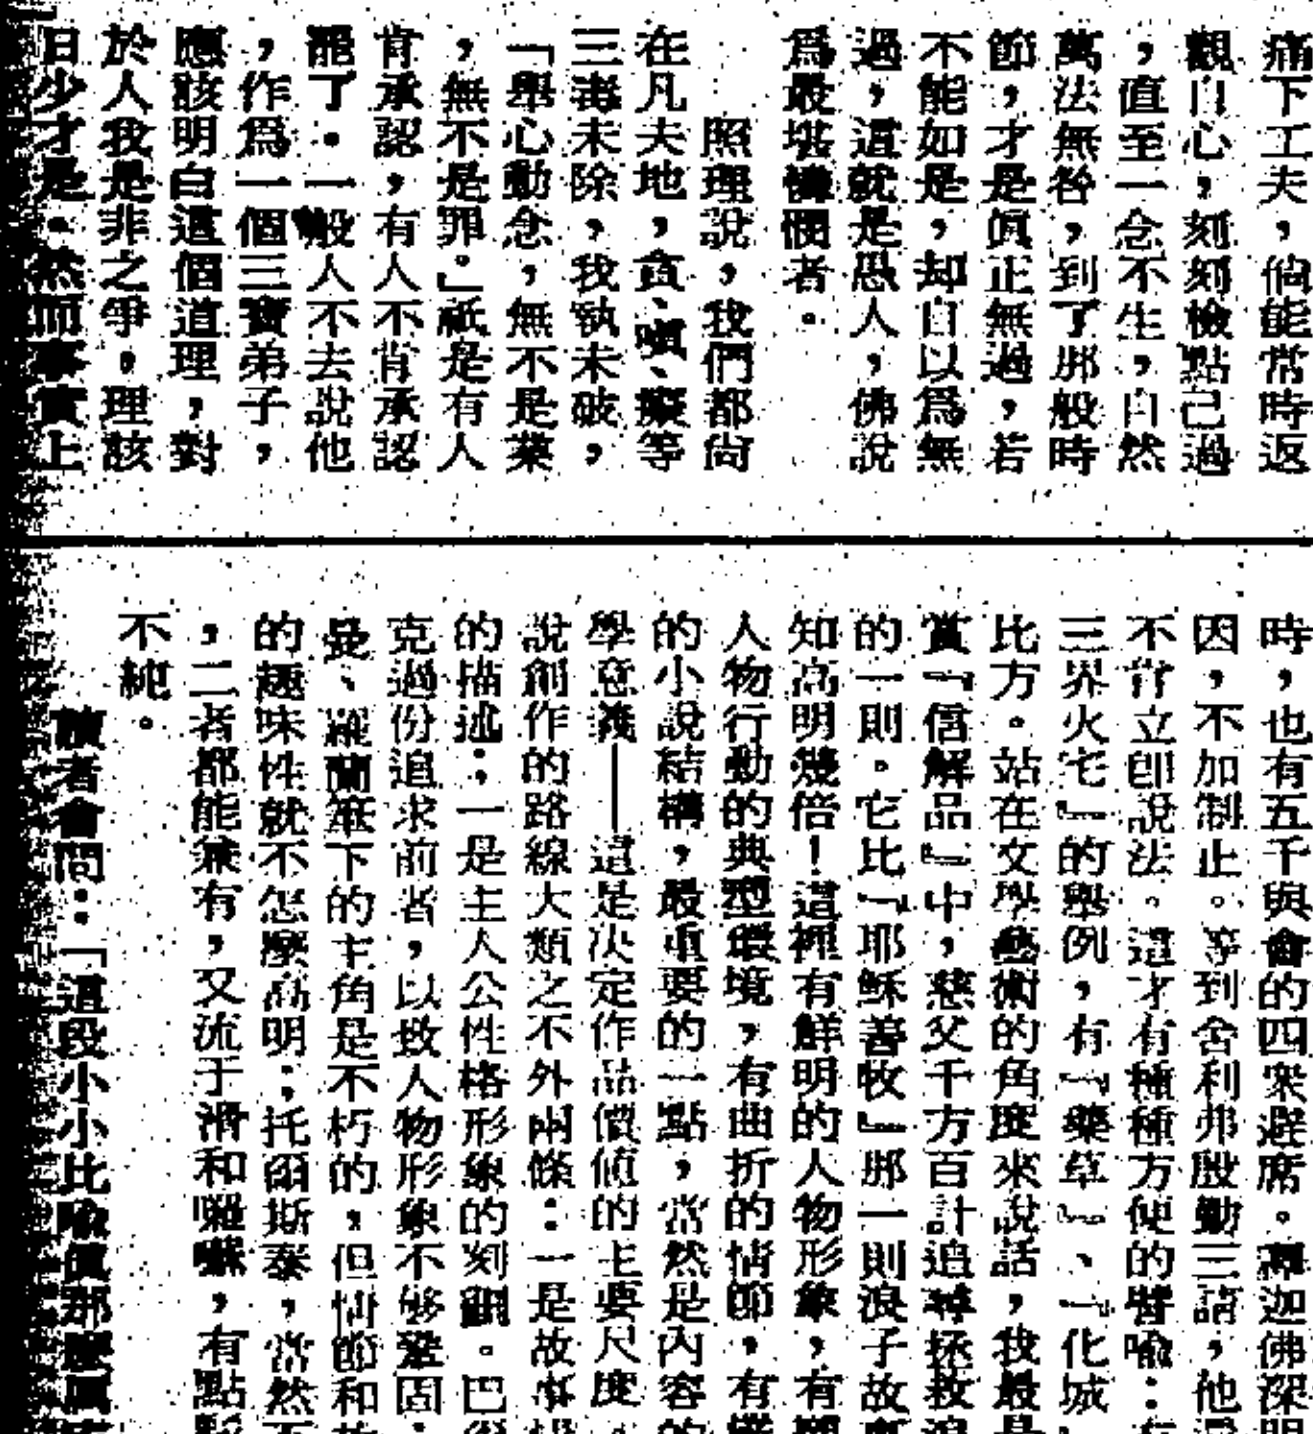 痛下工夫，倘能常時返
觀自心，刻刻檢點己過
，直至一念不生，自然
萬法無咎，到了那般時
節，才是眞正無過，若
不能如是，却自以爲無
過，這就是愚人，佛說
爲最堪憐憫者。
照理說，我們都尙
在凡夫地，貪、嗔、癡等
三毒未除，我執未破，
「舉心動念，無不是業
，無不是罪。」祇是有人
肯承認，有人不肯承認
罷了．一般人不去說他
，作爲一個三寶弟子，
應該明白這個道理，對
於人我是非之爭，理該
日少才是．然而事實上
時，也有五千與會的四衆遲席。釋迦佛深明
因，不加制止。等到舍利弗殷勤三請，他還
不肯立卽說法。這才有種種方便的譬喩：在
三界火宅』的舉例，有『藥草』、『化城』
比方。站在文學藝術的角度來說話，我最是
賞『信解品』中，慈父千方百計追尋拯救浪
的一則。它比『耶穌善牧』那一則浪子故事
知高明幾倍！這裡有鮮明的人物形象，有
人物行動的典型環境，有曲折的情節，有
的小說結構，最重要的一點，當然是內容的
學意義——這是決定作品價値的主要尺度
說創作的路線大類之不外兩條：一是故事
的描述；一是主人公性格形象的刻劃。巴
克過份追求前者，以致人物形象不够鞏固；
曼、羅蘭筆下的主角是不朽的，但情節和故
的趣味性就不怎麼高明；托爾斯泰，當然不
，二者都能兼有，又流于滑和囉囌，有點
不純。
讀者會問：「這段小小比喩値那麼